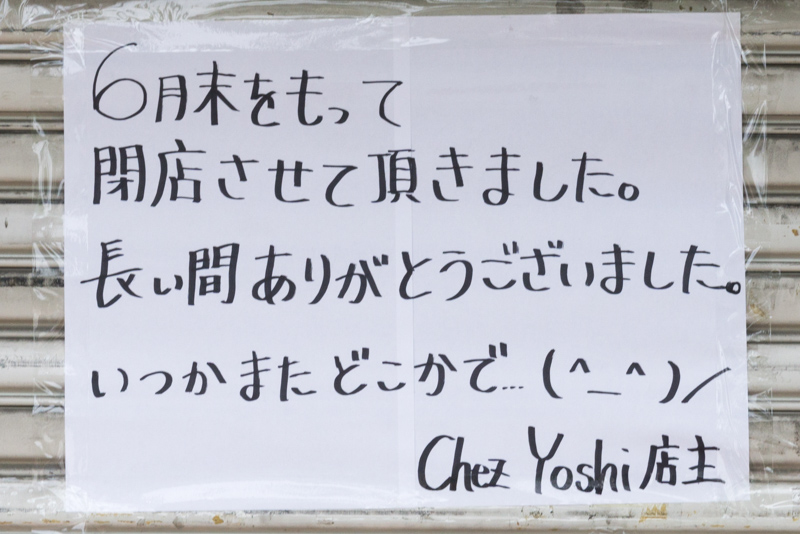 6月末をもって
閉店させて頂きました。
長い間ありがとうございました。
いつかまたどこかで…(^_^)／
Chez Yoshi 店主